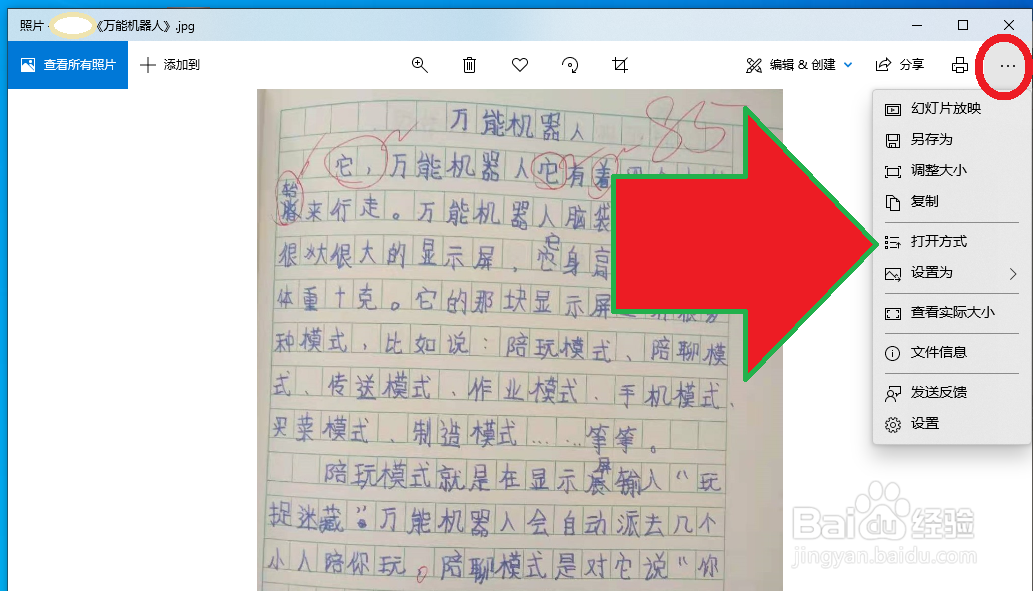 照片 - 《万能机器人》.jpg
查看所有照片 添加到 编辑 & 创建 分享
幻灯片放映
另存为
调整大小
复制
打开方式
设置为
查看实际大小
文件信息
发送反馈
设置
万能机器人 85
它，万能机器人它有着
来行走。万能机器人脑袋
很大很大的显示屏，它身高
体重十克。它的那块显示屏
种模式，比如说：陪玩模式、陪聊模
式、传送模式、作业模式、手机模式、
买菜模式、制造模式……等等。
陪玩模式就是在显示屏输入“玩
捉迷藏”万能机器人会自动派去几个
小人陪你玩。陪聊模式是对它说“你
Baidu 经验
jingyan.baidu.com